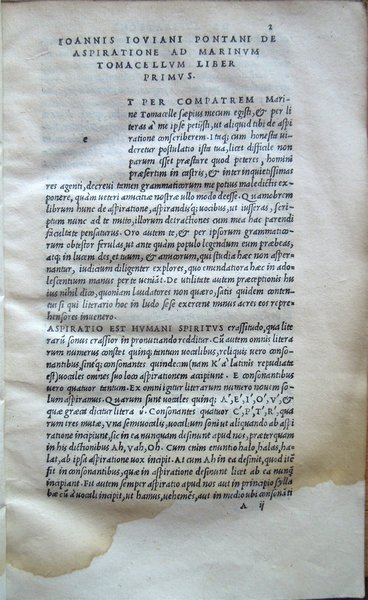 2
IOANNIS IOVIANI PONTANI DE
ASPIRATIONE AD MARINVM
TOMACELLVM LIBER
PRIMVS.
e
T PER COMPATREM Mari-
ne Tomacelle sæpius mecum egisti, & per li
teras a' me ipse petijsti, ut aliquid tibi de aspi
ratione conscriberem. I taq; cum honesta ui-
deretur postulatio ista tua, licet difficile non
parum esset præstare quod peteres, homini
præsertim in castris, & inter inquietissimas
res agenti, decreui tamen grammaticorum me potius maledictis ex-
ponere, quàm ueteri amicitiæ nostræ ullo modo deesse. Quamobrem
librum hunc de aspiratione, aspirandisq; uocibus, ut iusseras, scri-
ptum nunc ad te mitto, illorum detractiones cum mea hac parendi
facultate pensaturus. Oro autem te, & per ipsorum grammatico-
rum obtestor ferulas, ut ante quàm populo legendum eum præbeas,
atq; in lucem des, et tuum, & amicorum, qui studia hæc non asper-
nantur, iudicium diligenter explores, quo emendatiora hæc in ado-
lescentum manus perueniāt. De utilitate autem præceptionis hu
ius nihil dico, quoniam laudatores non quæro, satis quidem conten-
tus si qui literario hoc in ludo sese exercent minus acres eos repre-
hensores inuenero.
ASPIRATIO EST HVMANI SPIRITVS crassitudo, qua lite
rarū sonus crassior in pronuntiando redditur. Cū autem omnis litera
rum numerus constet quinq; tantum uocalibus, reliquis uero conso-
nantibus sint; consonantes quindecim (nam K' a' latinis repudiata
est) uocales omnes suo loco aspirationem accipiunt. E consonantibus
uero quatuor tantum. Ex omni igitur literarum numero nouem so-
lum aspiramus. Quarum sunt uocales quinq; A', E', I', O', V', &
quæ græca dicitur litera v. Consonantes quatuor C', P', T', R', qua
rum tres mutæ, una semiuocalis, uocalium soni ut aliquando ab aspi
ratione incipiunt, sic in ea nunquam desinunt apud nos, præterquam
in his dictionibus Ah, vah, Oh. Cum enim enuntio halo, halas, ha-
lat, ab ipsa aspiratione uox incipit. At cum Ah in ea desinit, quod itē
fit in consonantibus, quæ in aspiratione desinunt licet ab ea nunq̃
incipiant. Fit autem semper aspiratio apud nos aut in principio sylla
bæ cū a' uocali incipit, ut hamus, uehemēs, aut in medio ubi consonāti
A ij